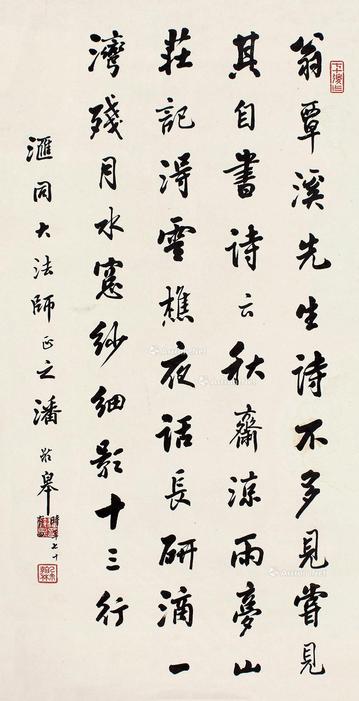 翁覃溪先生詩不多見嘗見
其自書詩云秋齋涼雨夢山
莊記得雪樵夜話長研滴一
灣殘月水窓紗細影十三行
滙同大法師正之潘齡皋
時年七十